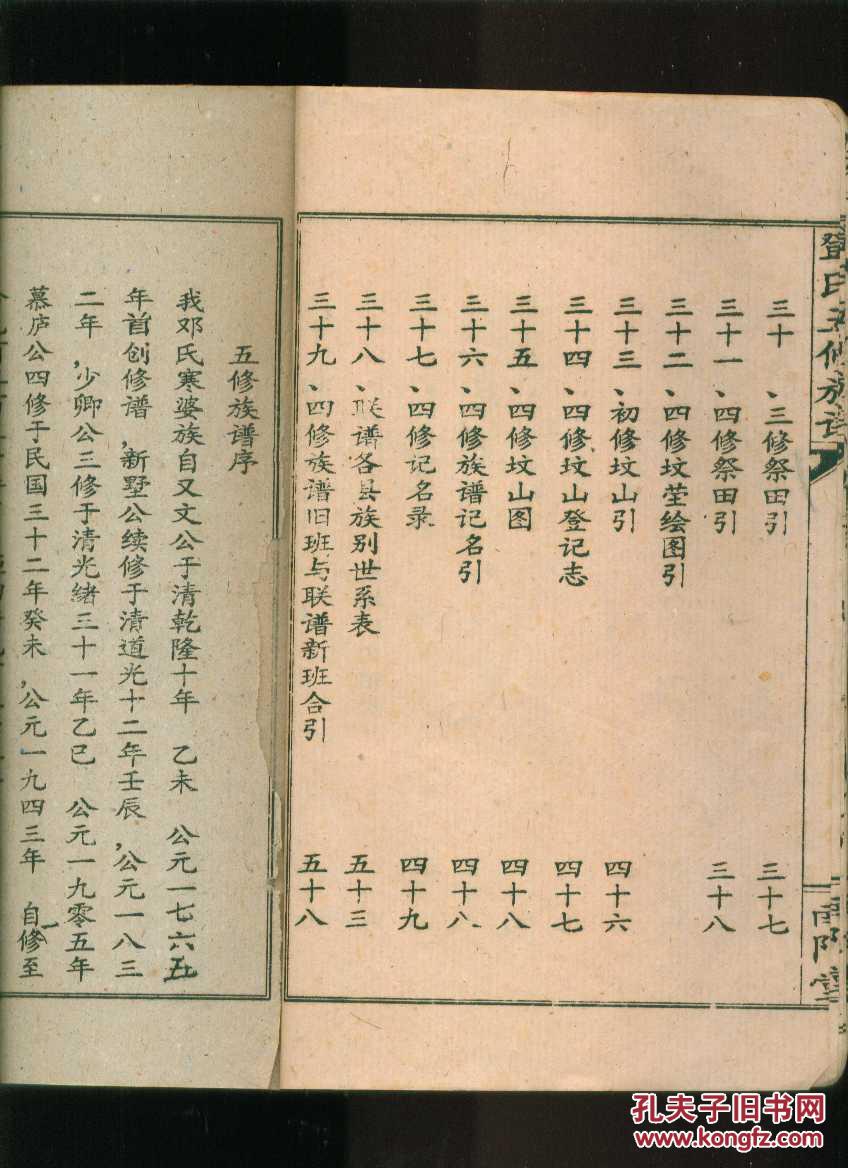 鄧氏五修族谱
南阳堂
三十、三修祭田引 三十七
三十一、四修祭田引 三十八
三十二、四修坟茔绘图引
三十三、初修坟山引 四十六
三十四、四修坟山登记志 四十七
三十五、四修坟山图 四十八
三十六、四修族谱记名引 四十八
三十七、四修记名录 四十九
三十八、联谱各县族别世系表 五十三
三十九、四修族谱旧班与联谱新班合引 五十八
五修族谱序
我邓氏寒婆族自又文公于清乾隆十年 乙未 公元一七六五
年首创修谱,新墅公续修于清道光十二年壬辰,公元一八三
二年,少卿公三修于清光绪三十一年乙巳 公元一九零五年
慕庐公四修于民国三十二年癸未,公元一九四三年 自修至
孔夫子旧书网
www.kongfz.com